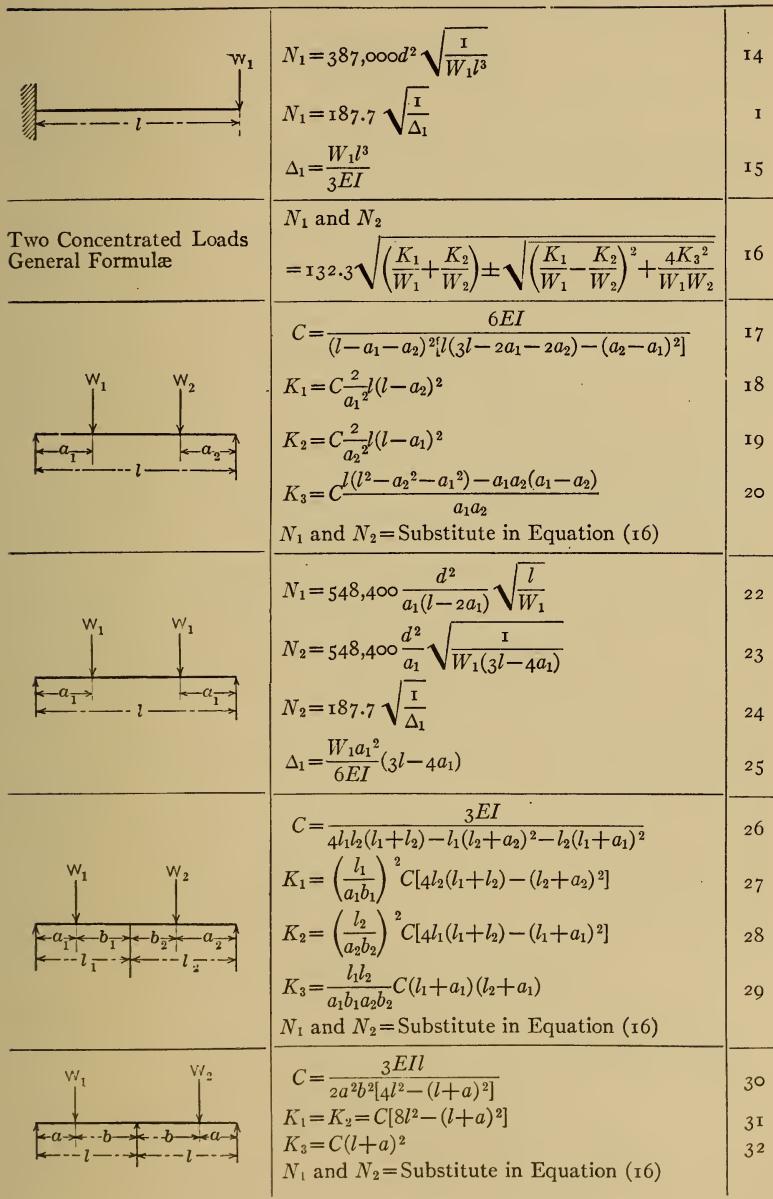 W₁
l
N₁=387,000d² √(1/(W₁l³)) 14
N₁=187.7 √(1/Δ₁) 1
Δ₁=W₁l³/(3EI) 15
Two Concentrated Loads
General Formulæ
N₁ and N₂
=132.3√((K₁/W₁+K₂/W₂)±√((K₁/W₁-K₂/W₂)²+4K₃²/(W₁W₂))) 16
W₁ W₂
a₁ a₂
l
C=6EI/((l-a₁-a₂)²[l(3l-2a₁-2a₂)-(a₂-a₁)²]) 17
K₁=C(2/a₁²)l(l-a₂)² 18
K₂=C(2/a₂²)l(l-a₁)² 19
K₃=C(l(l²-a₂²-a₁²)-a₁a₂(a₁-a₂))/(a₁a₂) 20
N₁ and N₂=Substitute in Equation (16)
W₁ W₁
a₁ a₁
l
N₁=548,400 d²/(a₁(l-2a₁)) √(l/W₁) 22
N₂=548,400 d²/a₁ √(1/(W₁(3l-4a₁))) 23
N₂=187.7 √(1/Δ₁) 24
Δ₁=W₁a₁²/(6EI)(3l-4a₁) 25
W₁ W₂
a₁ b₁ b₂ a₂
l₁ l₂
C=3EI/(4l₁l₂(l₁+l₂)-l₁(l₂+a₂)²-l₂(l₁+a₁)²) 26
K₁=(l₁/(a₁b₁))²C[4l₂(l₁+l₂)-(l₂+a₂)²] 27
K₂=(l₂/(a₂b₂))²C[4l₁(l₁+l₂)-(l₁+a₁)²] 28
K₃=l₁l₂/(a₁b₁a₂b₂)C(l₁+a₁)(l₂+a₁) 29
N₁ and N₂=Substitute in Equation (16)
W₁ W₂
a b b a
l l
C=3EIl/(2a²b²[4l²-(l+a)²]) 30
K₁=K₂=C[8l²-(l+a)²] 31
K₃=C(l+a)² 32
N₁ and N₂=Substitute in Equation (16)